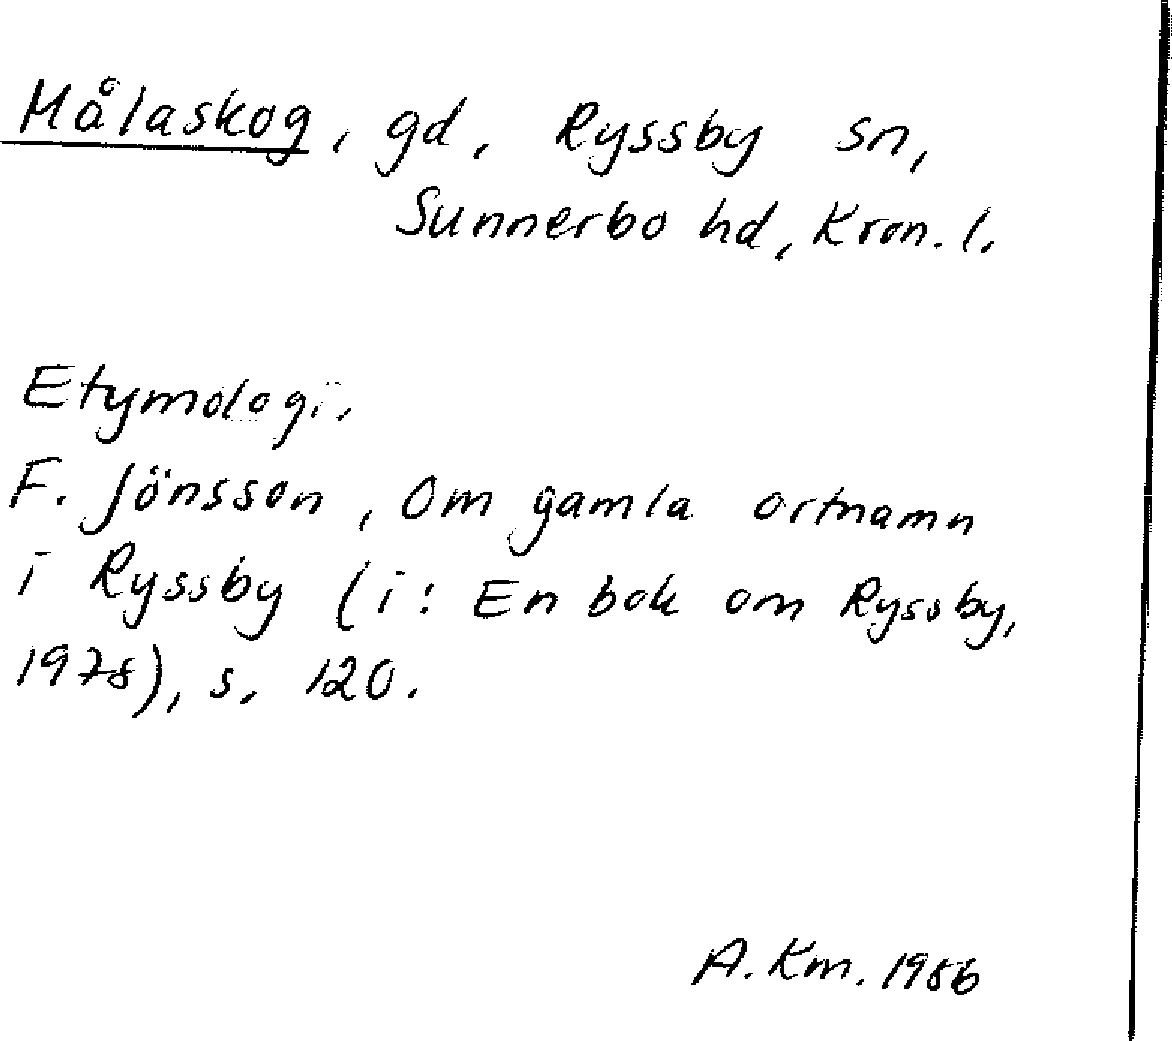 Målaskog, gd, Ryssby sn,
Sunnerbo hd, Kron. l.
Etymologi.
F. Jönsson, Om gamla ortnamn
i Ryssby (i: En bok om Ryssby,
1978), s. 120.
A. Km. 1986